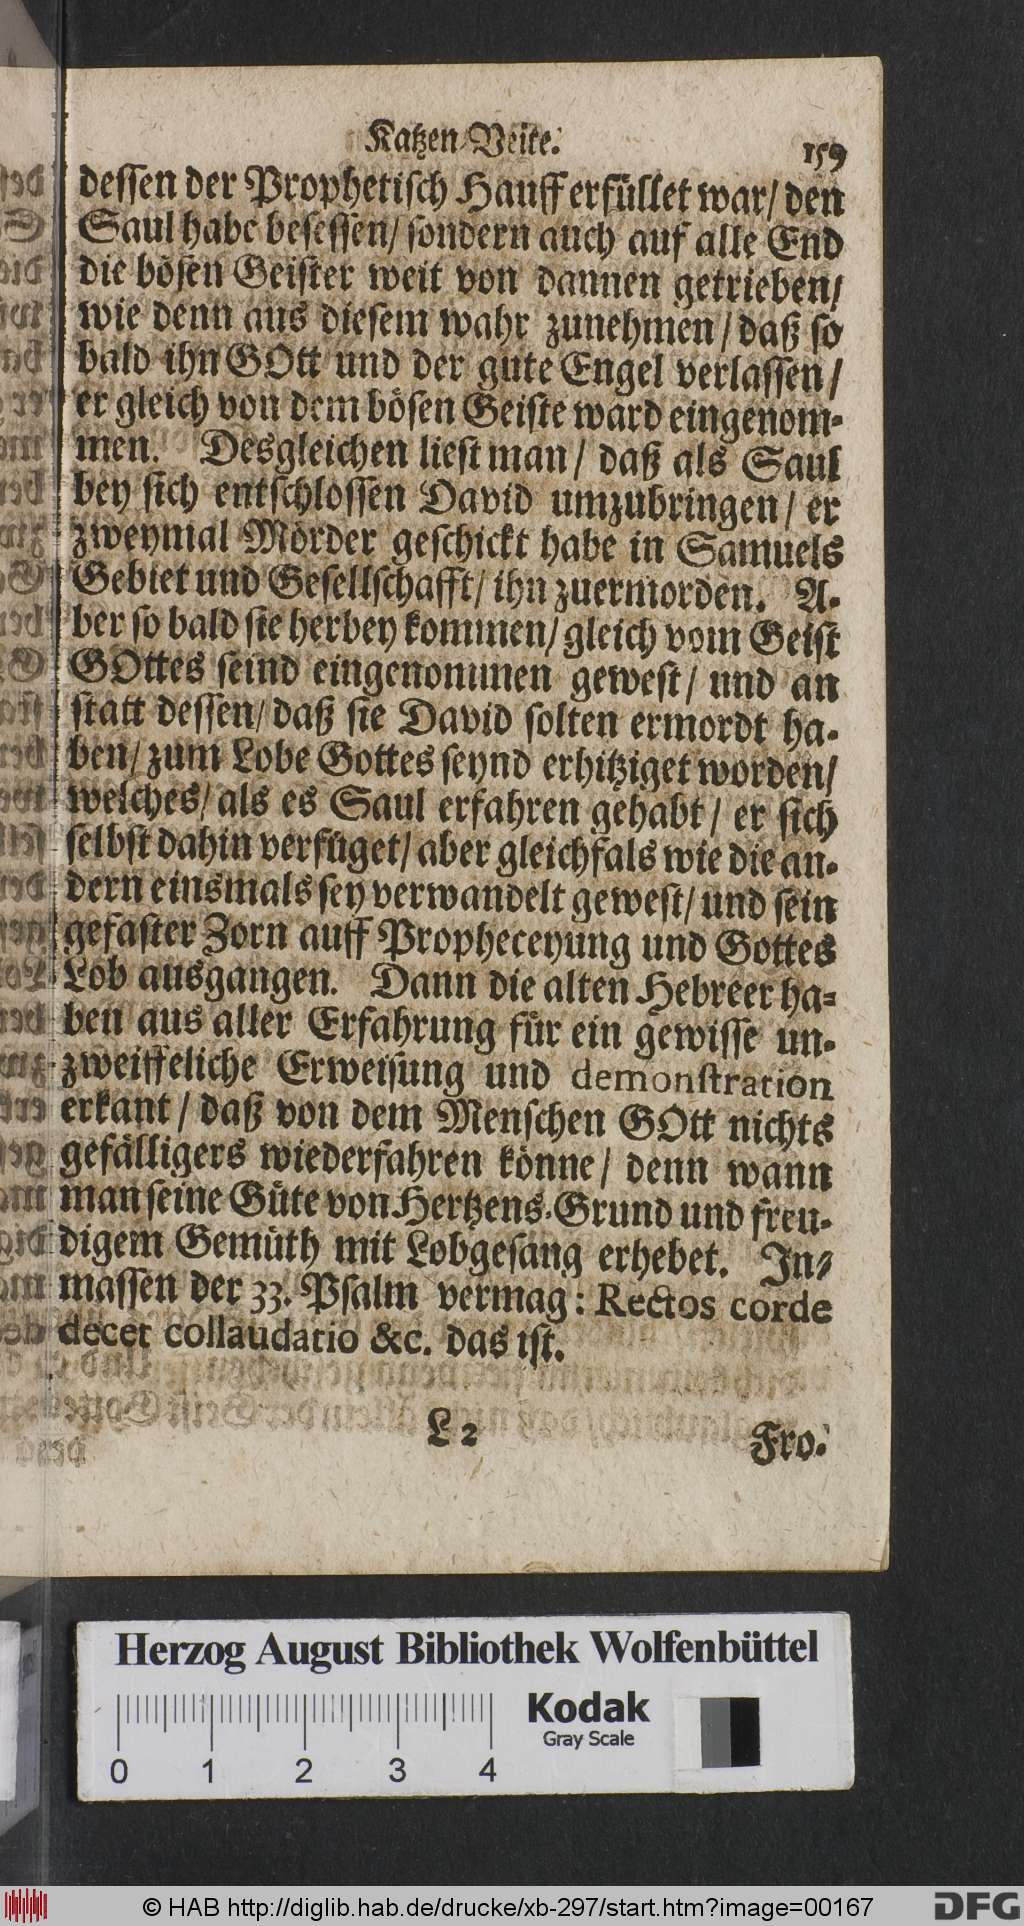 Katzen-Veite. 159
dessen der Prophetisch Hauff erfüllet war/ den
Saul habe besessen/ sondern auch auf alle End
die bösen Geister weit von dannen getrieben/
wie denn aus diesem wahr zunehmen/ daß so
bald ihn GOtt und der gute Engel verlassen/
er gleich von dem bösen Geiste ward eingenom-
men. Desgleichen liest man/ daß als Saul
bey sich entschlossen David umzubringen/ er
zweymal Mörder geschickt habe in Samuels
Gebiet und Gesellschafft/ ihn zuermorden. A-
ber so bald sie herbey kommen/ gleich vom Geist
GOttes seind eingenommen gewest/ und an
statt dessen/ daß sie David solten ermordt ha-
ben/ zum Lobe Gottes seynd erhitziget worden/
welches/ als es Saul erfahren gehabt/ er sich
selbst dahin verfüget/ aber gleichfals wie die an-
dern einsmals sey verwandelt gewest/ und sein
gefaster Zorn auff Propheceyung und Gottes
Lob ausgangen. Dann die alten Hebreer ha-
ben aus aller Erfahrung für ein gewisse un-
zweiffeliche Erweisung und demonstration
erkant/ daß von dem Menschen GOtt nichts
gefälligers wiederfahren könne/ denn wann
man seine Güte von Hertzens-Grund und freu-
digem Gemüth mit Lobgesang erhebet. In-
massen der 33. Psalm vermag: Rectos corde
decet collaudatio &c. das ist.
L 2 Fro-
Herzog August Bibliothek Wolfenbüttel
Kodak
Gray Scale
0 1 2 3 4
© HAB http://diglib.hab.de/drucke/xb-297/start.htm?image=00167
DFG